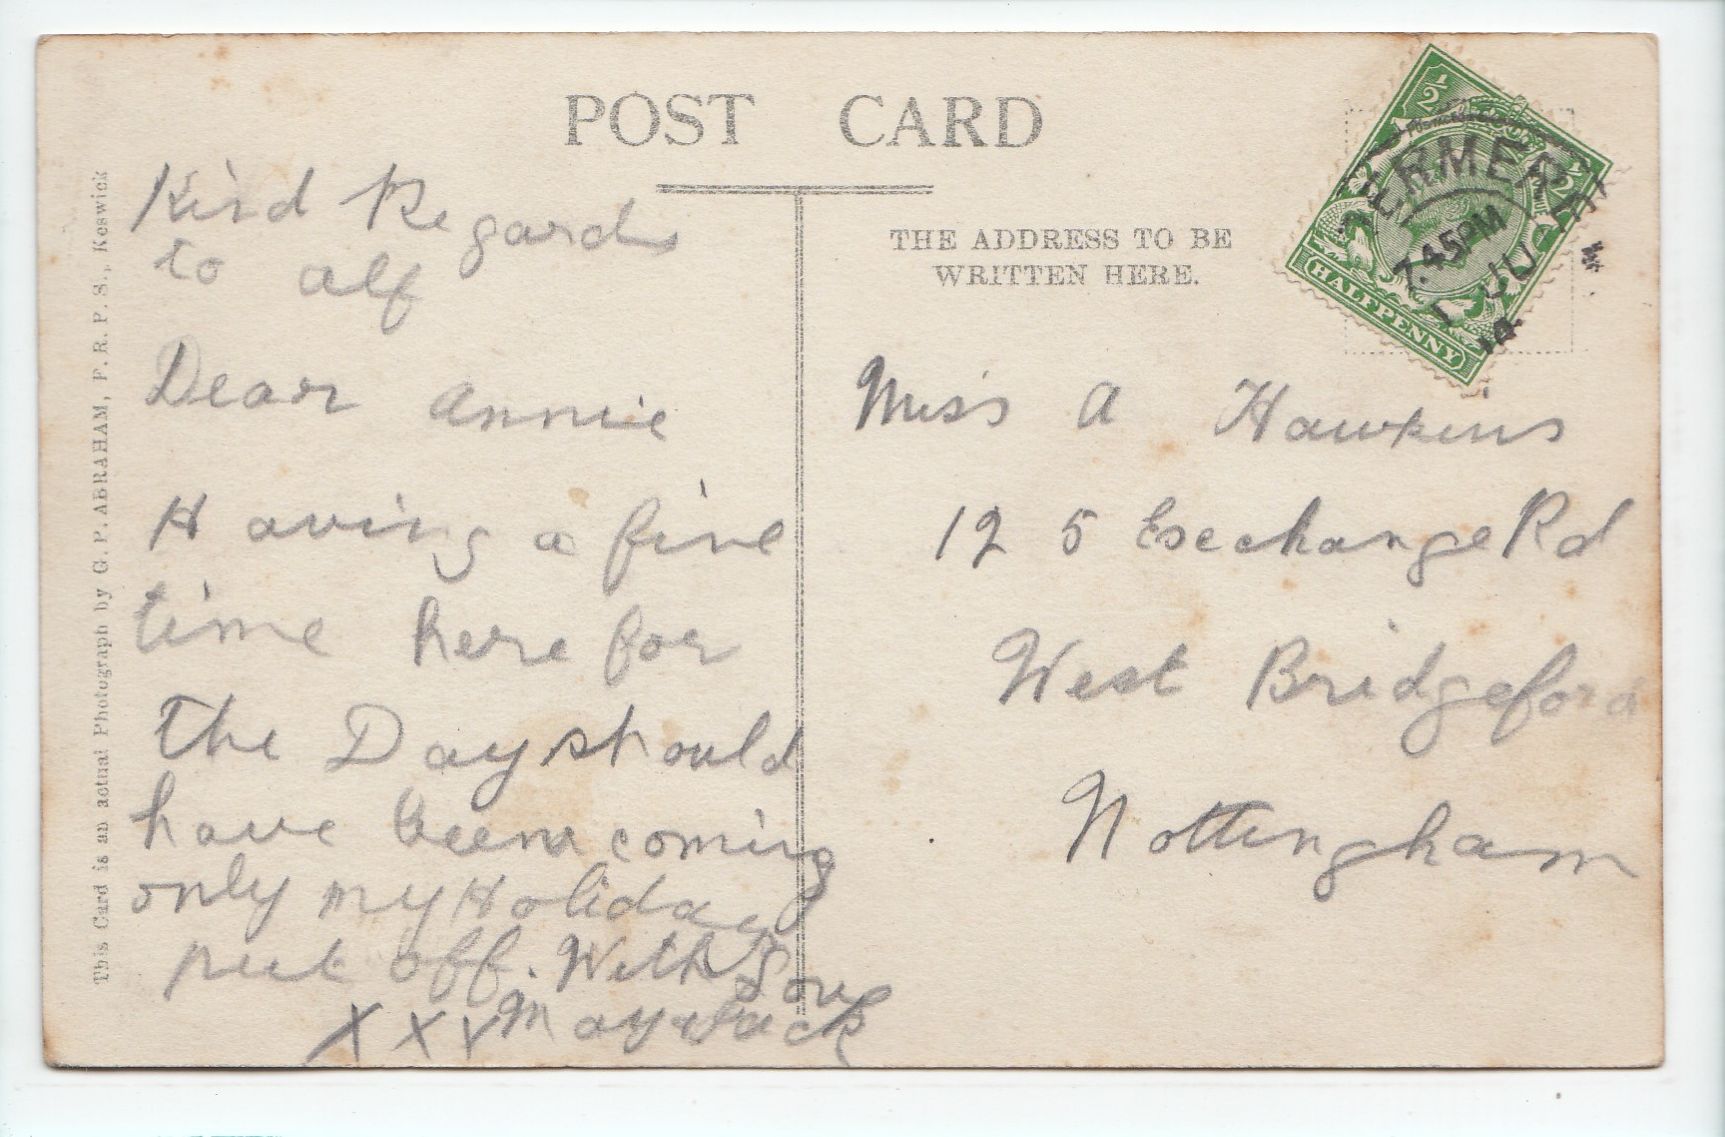 POST CARD
THE ADDRESS TO BE
WRITTEN HERE.
This Card is an actual Photograph by G. P. ABRAHAM, F. R. P. S., Keswick
Kind Regards
to alf
Dear annie
Having a fine
time here for
the Day should
have been coming
only my Holiday
put off. With Love
X X X May & Jack
Miss A Hawkins
12 5 Exchange Rd
West Bridgeford
Nottingham
1/2 1/2
HALFPENNY
7.45PM
1 JU
14